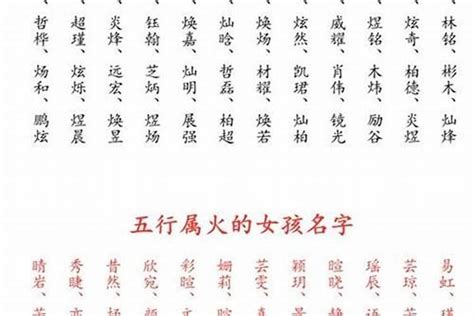 哲桦、 超瑾、 炎烽、 钰翰、 焕嘉、 灿晗、 焕炀、 炫然、 威耀、 煜铭、 炫奇、 林铭、
炀和、 炫烁、 远宏、 芝炳、 灿明、 哲磊、 材耀、 凯珺、 肖伟、 木炜、 柏德、 彬木、
鹏炫 煜晨 焕昱 煜炀 展强 柏超 焕若 灿柏 镜光 励谷 炎煜 灿烽
五行属火的女孩名字
晴岩、 秀睫、 昔然、 欣宛、 彩暄、 姗莉、 芸雯、 颖玥、 暄晓、 瑶辰、 芸琼、 易虹、